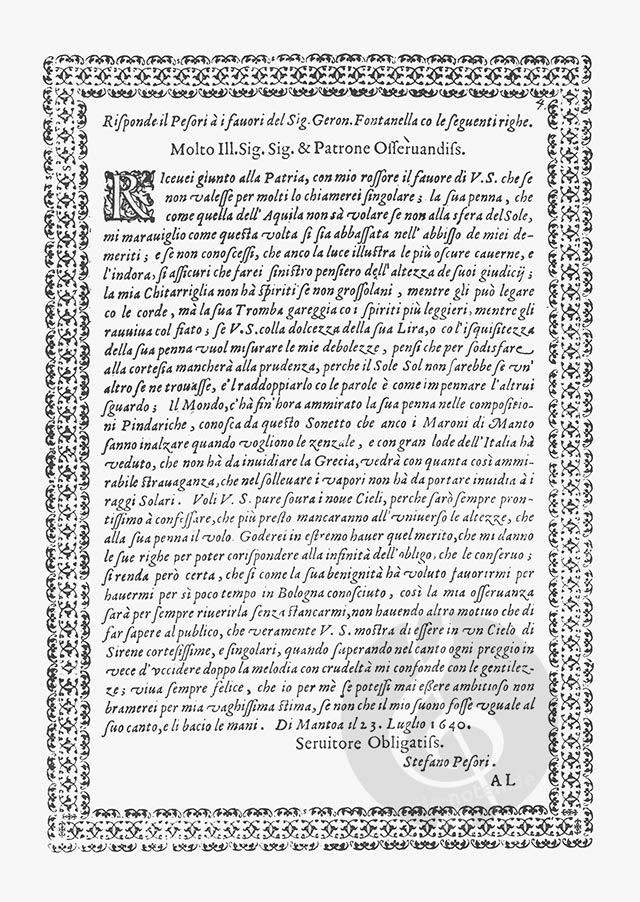 4.
Riſponde il Peſori à i fauori del Sig. Geron. Fontanella co le ſeguenti righe.
Molto Ill. Sig. Sig. & Patrone Oſſeruandiſs.
RIceuei giunto alla Patria, con mio roſſore il fauore di V.S. che ſe
non valeſſe per molti lo chiamerei ſingolare; la ſua penna, che
come quella dell' Aquila non sà volare ſe non alla sfera del Sole,
mi marauiglio come queſta volta ſi ſia abbaſſata nell' abbiſſo de miei de-
meriti; e ſe non conoſceſſi, che anco la luce illuſtra le più oſcure cauerne, e
l'indora; ſi aſſicuri che farei ſiniſtro penſiero dell'altezza de ſuoi giudicij;
la mia Chitarriglia non hà ſpiriti ſe non groſſolani, mentre gli può legare
co le corde, mà la ſua Tromba gareggia co i ſpiriti più leggieri, mentre gli
rauuiua col fiato; ſe V.S. colla dolcezza della ſua Lira, o co l'iſquiſitezza
della ſua penna vuol miſurare le mie debolezze, penſi che per ſodisfare
alla corteſia mancherà alla prudenza, perche il Sole Sol non ſarebbe ſe vn'
altro ſe ne trouaſſe, e'l raddoppiarlo co le parole è come impennare l'altrui
ſguardo; Il Mondo, c'hà fin'hora ammirato la ſua penna nelle compoſitio-
ni Pindariche, conoſca da queſto Sonetto che anco i Maroni di Manto
ſanno inalzare quando vogliono le zenzale, e con gran lode dell'Italia hà
veduto, che non hà da inuidiare la Grecia, vedrà con quanta così ammi-
rabile ſtrauaganza, che nel ſolleuare i vapori non hà da portare inuidia à i
raggi Solari. Voli V. S. pure ſoura i noue Cieli, perche ſarò ſempre pron-
tiſſimo à confeſſare, che più preſto mancaranno all'vniuerſo le altezze, che
alla ſua penna il volo. Goderei in eſtremo hauer quel merito, che mi danno
le ſue righe per poter coriſpondere alla infinità dell'obligo, che le conſeruo;
ſi renda però certa, che ſi come la ſua benignità hà voluto fauorirmi per
hauermi per sì poco tempo in Bologna conoſciuto, così la mia oſſeruanza
ſarà per ſempre riuerirla ſenza ſtancarmi, non hauendo altro motiuo che di
far ſapere al publico, che veramente V. S. moſtra di eſſere in vn Cielo di
Sirene corteſiſſime, e ſingolari, quando ſuperando nel canto ogni preggio in
vece d'vccidere doppo la melodia con crudeltà mi confonde con le gentilez-
ze; viua ſempre felice, che io per mè ſe poteſſi mai eßere ambitioſo non
bramerei per mia vaghiſſima ſtima, ſe non che il mio ſuono foſſe vguale al
ſuo canto, e li bacio le mani. Di Mantoa il 23. Luglio 1640.
Seruitore Obligatiſs.
Stefano Peſori.
AL